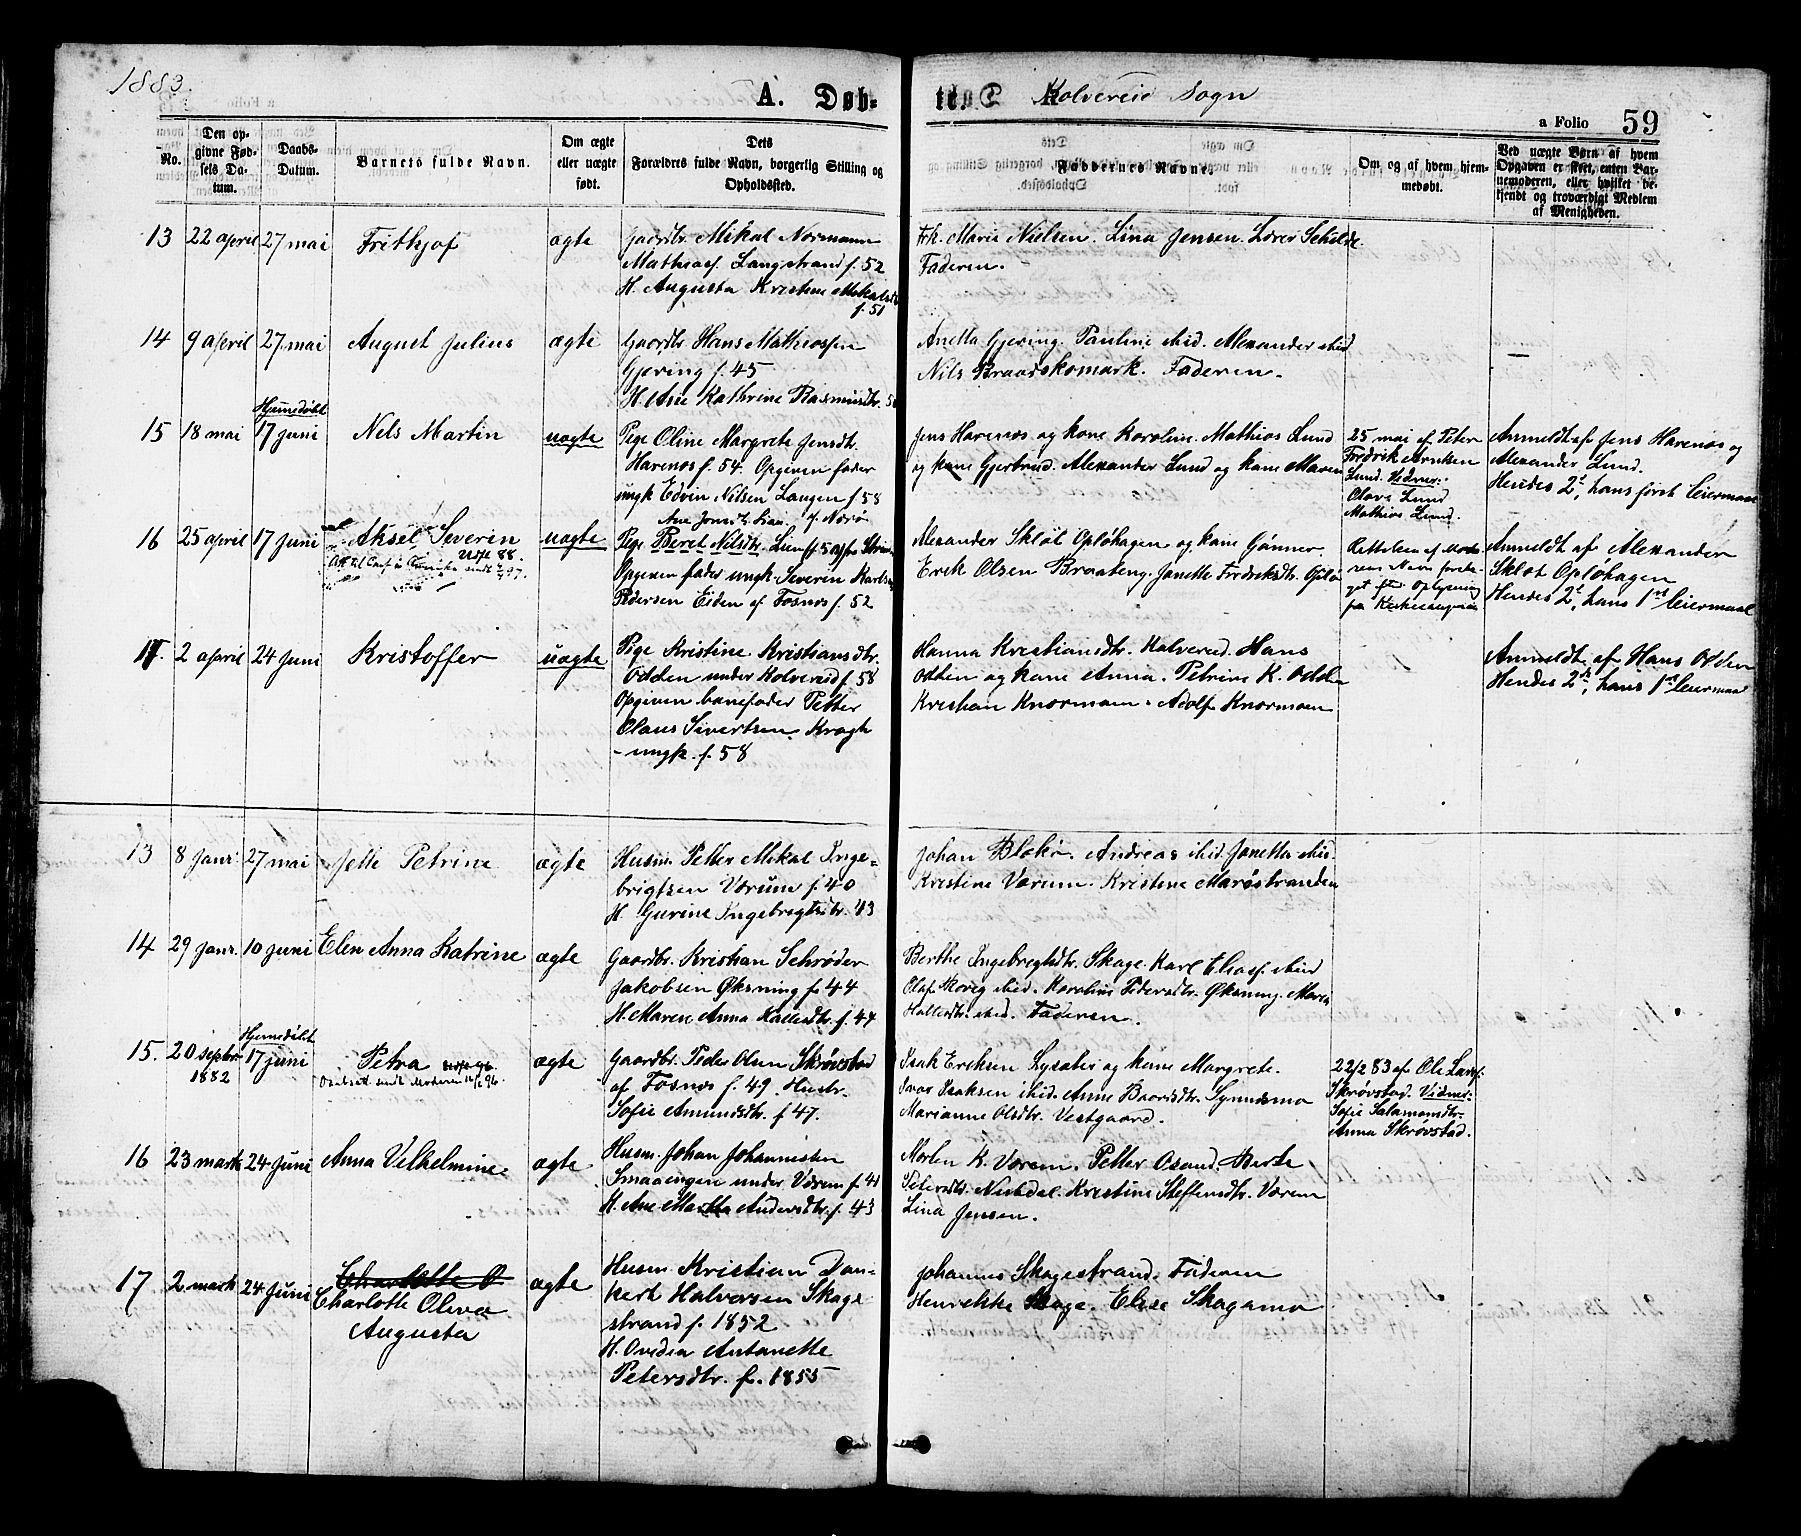 1883.
A. Døb-
te Kolvereid Sogn
a Folio 59
No.
Den op-
givne Fød-
sels Da-
tum.
Daabs-
Datum.
Barnets fulde Navn.
Om ægte
eller uægte
født.
Dets
Forældres fulde Navn, borgerlig Stilling og
Opholdssted.
Faddernes Navne.
Om og af hvem hjem-
medøbt.
Ved uægte Børn af hvem
Opgaven er skeet, enten Bar-
nemoderen, eller hvilket be-
kjendt og troværdigt Medlem
af Menigheden.
13 22 april 27 mai Frithjof ægte
Gaardbr. Mikal Normann
Mathiasf. Langstrand f. 52
H. Augusta Kristine Mikalsdtr
f. 51
Frk. Marie Nielsen. Lina Jensen. Lærer Schilde
Faderen.
14 9 april 27. mai August Julius ægte
Gaardbr Hans Mathiassen
Gjering f. 45
H. Ane Kathrine Rasmusdtr.
Anetta Gjering. Pauline ibid. Alexander ibid
Nils Braaskomark. Faderen.
—
15 18 mai Hjemmedøbt 17 juni Nels Martin uægte
Pige Oline Margrete Jensdt.
Harenos f. 54. Opgiven fader
ungk Edvin Nilsen Langen f. 58
Jens Harenos og kone Karoline. Mathias Lund
og kone Gjertrud. Alexander Lund og kone Maren
25 mai af Peter
Fredrik Arntsen
Lund. Vidner:
Olava Lund
Mathias Lund.
Anmeldt af Jens Harenos og
Alexander Lund.
Hendes 2t, hans først leiermaal
16 25 april 17 juni Aksel Severin uægte
Att til 88.
97.
Pige Beret Nilsdtr. Lien
Opgiven fader ungk. Severin Karls
Pedersen Eiden af Fosnes f. 52
Alexander Skløt Opløhagen og kone Gunner.
Erik Olsen Braateng. Janette Fredriksdtr. Opløi
Rettelsen af Mode-
rens Navn foreta-
get efter Oplysning
fra Kirkesangeren
Anmeldt af Alexander
Skløt Opløhagen
Hendes 2t, hans 1ste leiermaal
17. 2 april 24 juni Kristoffer uægte
Pige Kristine Kristiansdtr.
Odden under Kolvereid f. 58
Opgiven barnefader Petter
Olaus Sivertsen Kragh
- ungk. f. 58
Hanna Kristiansdtr. Kolvereid. Hans
Odden og kone Anna. Petrine K. Odden
Kristian Knarmoen. Adolf Knarmoen
Anmeldt af Hans Odden
Hendes 2det, hans 1ste leiermaal
13 8 janr. 27 mai Jette Petrine ægte
Husm. Petter Mikal Inge-
brigtsen Værum f. 40
H. Gurine Ingebrigtsdtr. 43
Johan Blakø. Andreas ibid. Janetta ibid.
Kristine Værum. Kristine Marøstranden
14 29 janr. 10 juni Elen Anna Katrine ægte
Gaardbr. Kristian Schrøder
Jakobsen Øksning f. 44
H. Maren Anna Hallesdtr. f. 44
Berthe Ingebrigtsdtr. Skage. Karl Eliasf. ibid
Olaf Skorig ibid. Karoline Pedersdtr. Øksning. Maria
Hallesdtr. ibid. Faderen.
15. 20 septbr. 1882 Hjemmedøbt 17 juni Petra ægte
Daabsatt. sendt Moderen 16/6 96.
Gaardbr. Peder Olsen Skrøvstad
af Fosnes f. 49. Hustr.
Sofie Amundsdtr. f. 47.
Isak Eriksen Lysater og kone Margrete.
Ivar Isaksen ibid. Anne Baardsdtr. Synnesmo
Marianne Olsdtr. Vestgaard.
22/2 83 af Ole Larsf.
Skrøvstad. Vidner:
Sofie Salamonsdtr.
Anna Skrøvstad.
16 23 marts 24 juni Anna Vilhelmine ægte
Husm. Johan Johannessen
Smaaengen under Værem f. 41
H. Ane Martha Andersdtr. f. 43
Morten K. Værem. Petter Osand. Berte
Petersdtr. Nubdal. Kristine Steffensdtr. Værem
Lina Jensen.
17 2 marts 24 juni Charlotte O
Charlotte Oliva
Augusta
ægte
Husm. Kristian Dan-
kert Halversen Skage-
strand f. 1852
H. Ovidia Antonette
Petersdtr. f. 1855
Johannes Skagestrand. Faderen
Henrikke Skage. Elise Skagamo